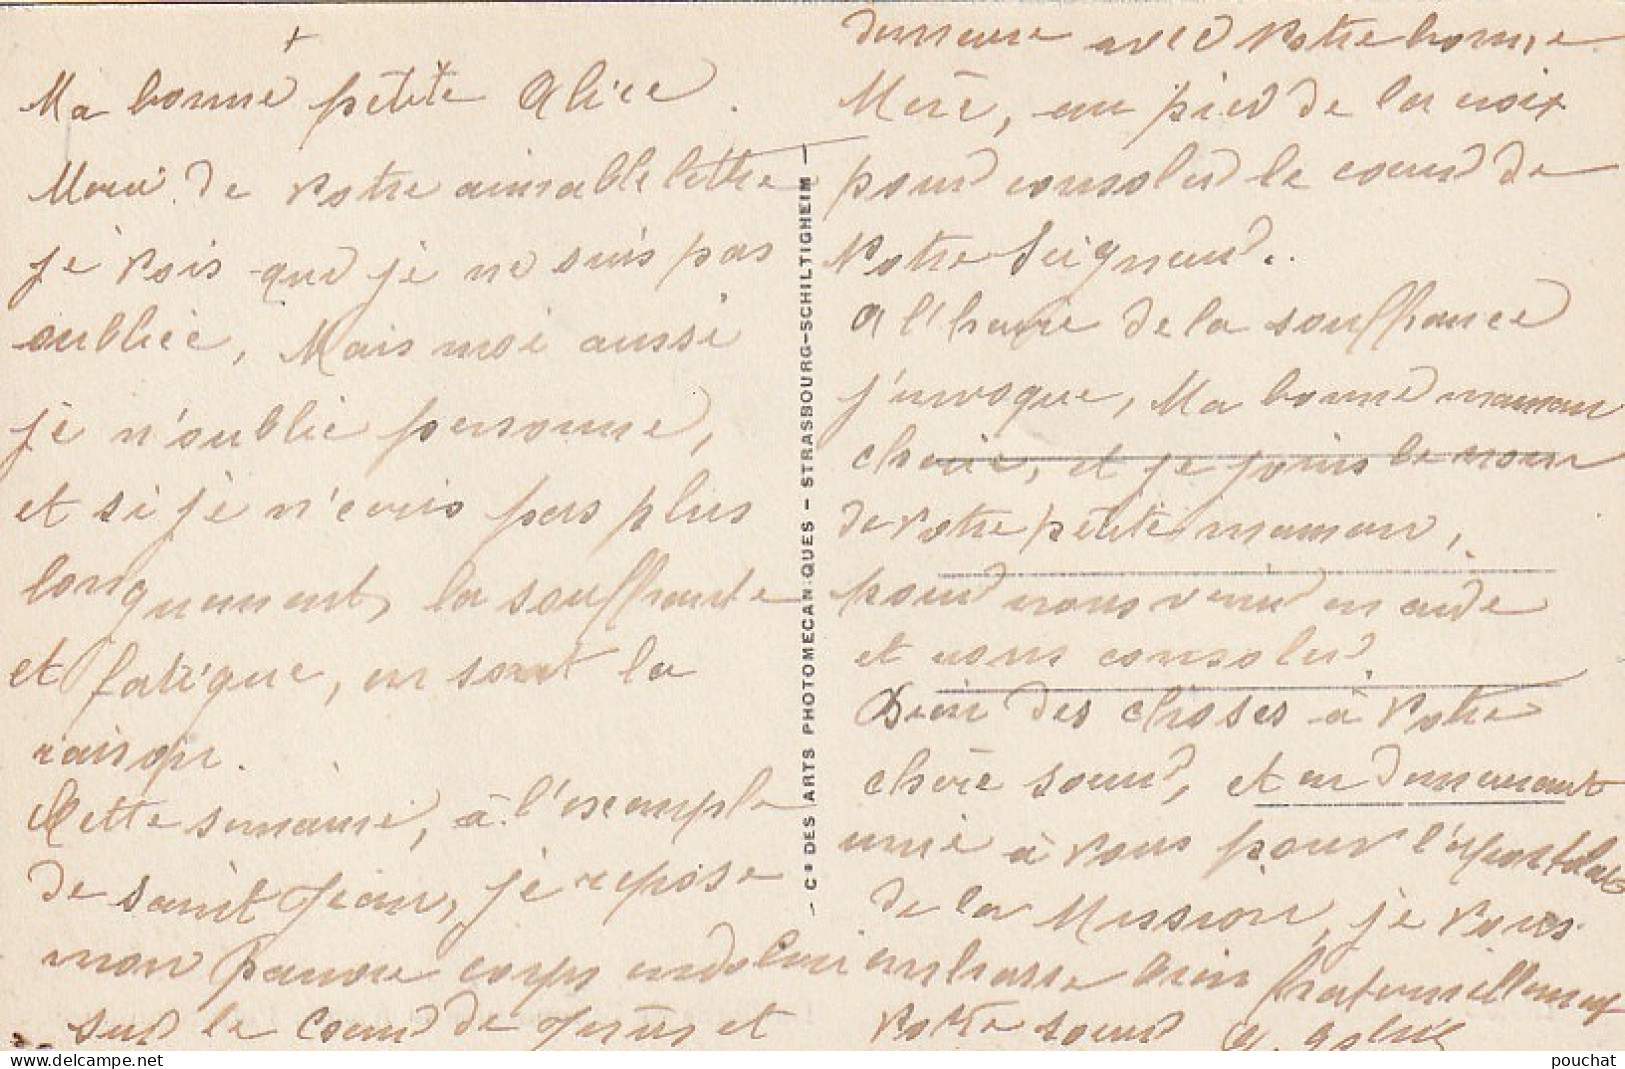 +
Ma bonne petite Alice.
Merci de votre aimable lettre
je vois que je ne suis pas
oubliée, Mais moi aussi
je n'oublie personne,
et si je n'écris pas plus
longuement, la souffrante
et fatigue, en sont la
raison.
Cette semaine, à l'exemple
de saint Jean, je repose
mon pauvre corps endolori
sur le Coeur de Jésus et
- Cie DES ARTS PHOTOMECANIQUES - STRASBOURG-SCHILTIGHEIM -
demeure avec Votre bonne
Mère, au pied de la croix
pour consoler le coeur de
Notre Seigneur.
A l'heure de la souffrance
j'invoque, Ma bonne maman
chérie, et je joins le nom
de votre petite maman,
pour nous venir en aide
et nous consoler.
Bien des choses à Votre
chère soeur, et en demeurant
unie à vous pour l'apostolat
de la Mission, je vous
embrasse bien fraternellement
Votre soeur
pouchat